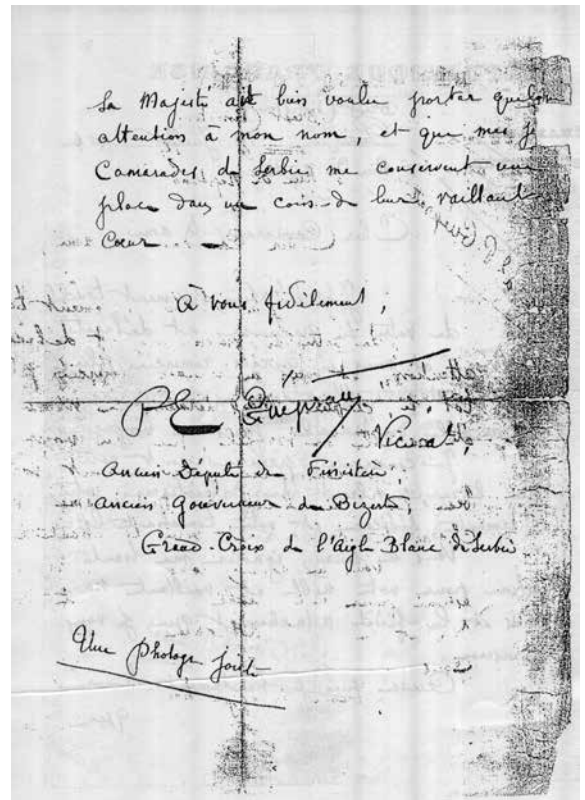 Sa Majesté ait bien voulu porter quelque
attention à mon nom, et que mes
Camarades de Serbie me conservent une
place dans un coin de leur vaillant
Cœur —
À vous fidèlement,
P E Guépratte
Vice-al,
Ancien Député du Finistère,
ancien Gouverneur de Bizerte,
Grand-Croix de l'Aigle Blanc de Serbie
Une photogr jointe